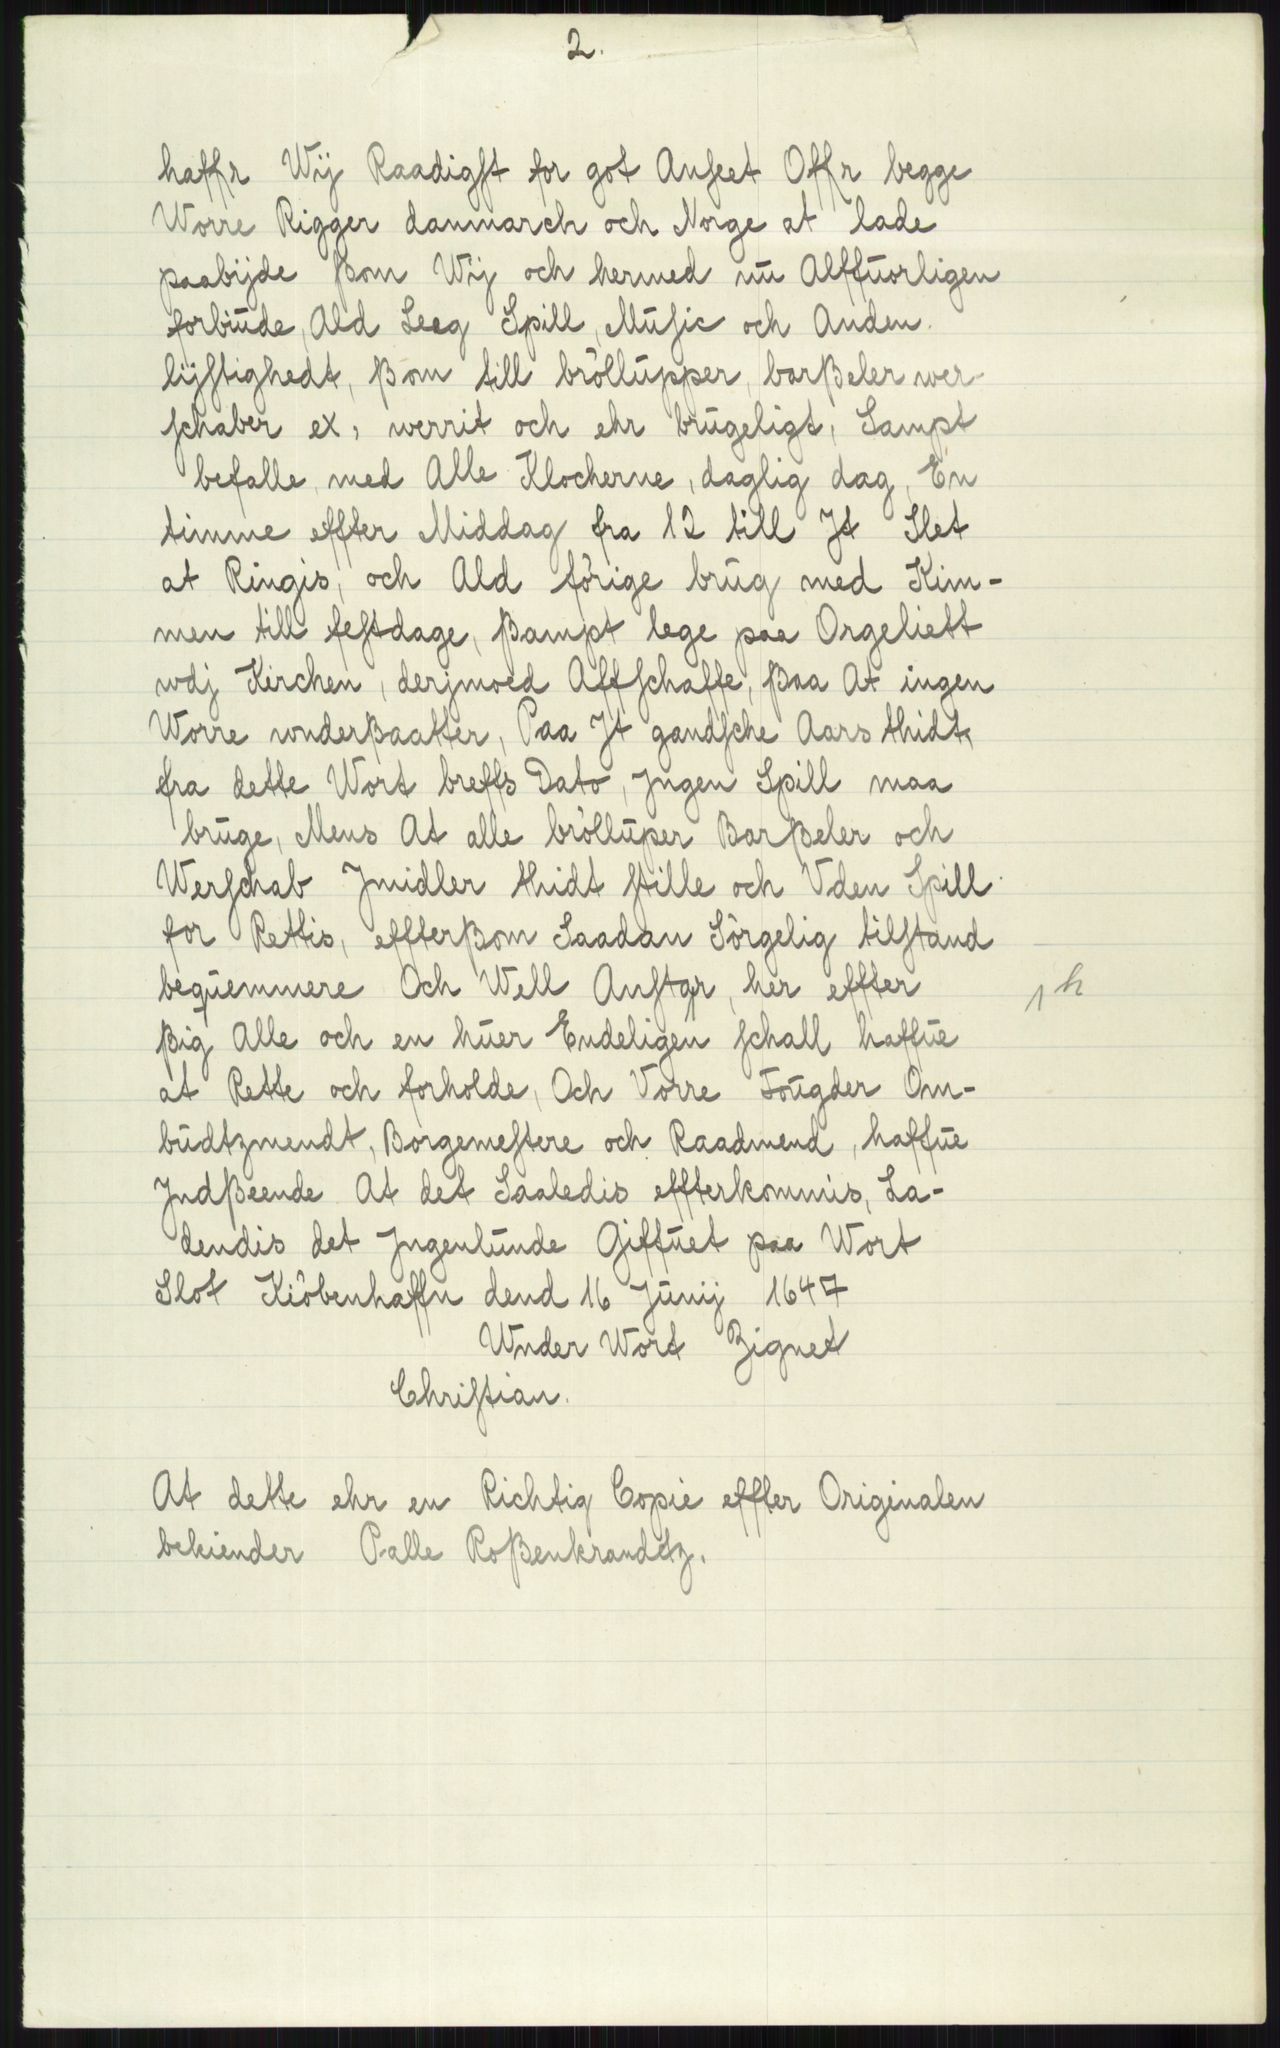 2.
haffr Wij Raadigst for got Anseet Offr begge
Worre Rigger danmarch och Norge at lade
paabijde ßom Wij och hermed nu Alffuorligen
forbiude, Ald Leeg Spill, Music och Anden
lijstighedt, ßom till bröllupper, barßeler wer-
schaber ex, werrit och ehr brugeligt, Sampt
befalle, med Alle Klocherne, daglig dag, En
timme effter Middag fra 12 till Jt Slet
at Ringis, och Ald förige brug med Kim-
men till festdage, ßampt lege paa Orgeliett
wdj Kirchen, derjmoed Affschaffe, ßaa At ingen
Worre wnderßaatter, Paa Jt gandsche Aars thidt,
fra dette Wort breffs Dato, Jngen Spill maa
bruge, Mens At alle bröllüper Barßeler och
Werschab Jmidler thidt stille och Vden Spill
for Rettis, effterßom Saadan Sörgelig tilstand
beqüemmere Och Well Anstar, her effter
1 h
ßig Alle och en huer Endeligen schall haffue
at Rette och forholde, Och Vorre Fougder Om-
budtzmendt, Borgemestere och Raadmend, haffue
Jndßeende At det Saaledis effterkommis, La-
dendis det Jngenlunde Giffuet paa Wort
Slot Kiöbenhaffn dend 16 Junij 1647
Wnder Wort Zignet
Christian.
At dette ehr en Richtig Copie effter Originalen
bekiender Palle Roßenkrandtz.